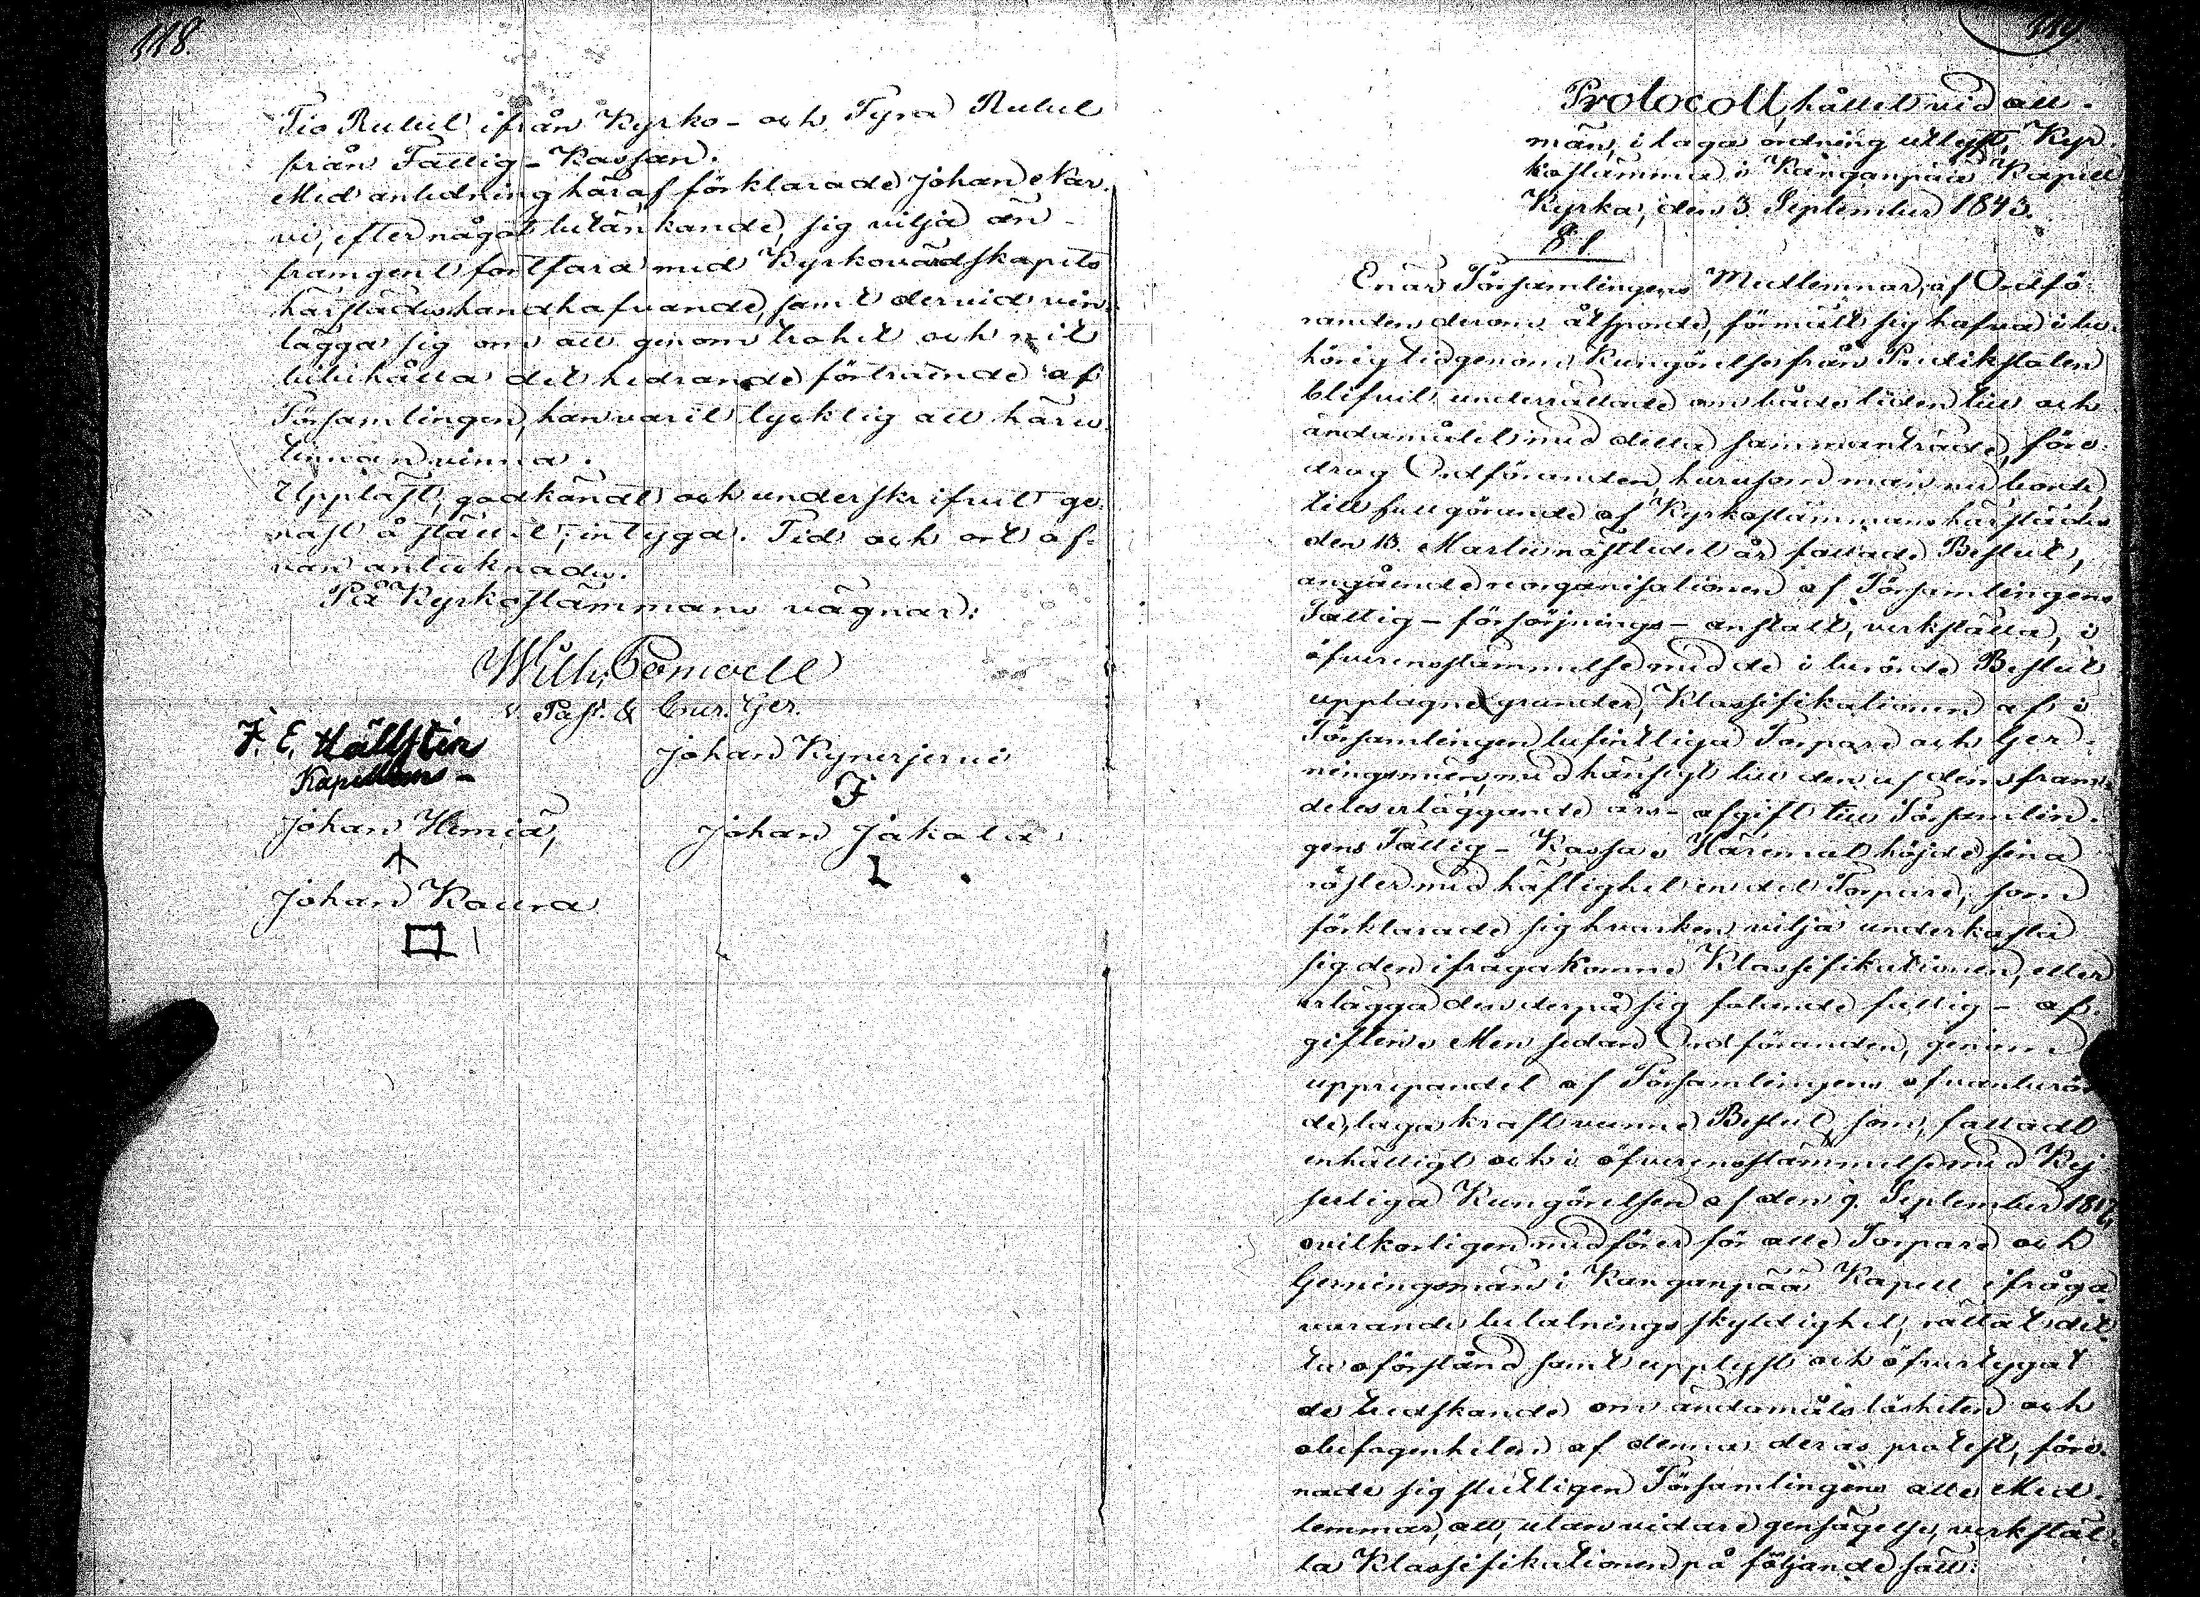 118.
Tio Rubel ifrån Kyrko- och Fyra Rubel
från Fattig-Kassan.
Med anledning häraf förklarade Johan Nar-
vi, efter något betänkande, sig vilja än-
framgent fortfara med Kyrkovärdskapets
härstädes handhafvande, samt dervid vin-
lägga sig om att genom trohet och nit
bibehålla det hedrande förtroende af
Församlingen, han varit lycklig att häru-
tinnan vinna.
Uppläst, godkändt och underskrifvit ge-
nast å stället; intyga. Tid och ort of-
van antecknade.
På Kyrkostämmans vägnar:
Wilh.
v. Past. & Cur. Ger.
F. E. Hällsten
Kapellans-
Johan Kynerjervi
Johan Hemiä,
Johan Jakola
Johan Kaura
119.
Protocoll, hållet vid all-
män, i laga ordning utlyst, Kyr-
kostämma i Kanganpää Kapell
Kyrka, den 3 September 1843.
§ 1.
Enär Församlingens Medlemmar, af Ordfö-
randen derom åtsporde, förmält sig hafva i be-
hörig tid genom Kungörelser från Predikstolen
blifvit underrättade om både tiden till och
ändamålet med detta sammanträde, före-
drog Ordföranden, hurusom man nu borde,
till fullgörande af Kyrkostämmans härstädes
den 13. Martii nästledet år fattade Beslut,
angående reorganisationen af Församlingens
Fattig-försörjnings-anstalt, verkställa, i
öfverensstämmelse med de i berörde Beslut
upptagne grunder, Klassifikationen af i
Församlingen befintliga Torpare och Ger-
ningsmän, med hänsigt till den af dem fram-
deles erläggande års-afgift till Församlin-
gens Fattig-Kassa. Häremot höjde sina
röster med häftighet en del Torpare, som
förklarade sig hvarken vilja underkasta
sig den ifrågakomne Klassifikationen, eller
erlägga den derpå sig fotande fattig-af-
giften. Men sedan Ordföranden, genom
upprepandet af Församlingens ofvanberör-
de, laga kraft vunne Beslut, som, fattadt
enhälligt och i öfverensstämmelse med Kej-
serliga Kungörelsen af den 9. September 1817,
ovilkorligen medförer för alla Torpare och
Gerningsmän i Kanganpää Kapell ifråga-
varande betalningsskyldighet, rättat det-
ta oförstånd samt upplyst och öfvertygat
de tredskande om ändamålslösheten och
obefogenheten af denna deras protest, före-
nade sig slutligen Församlingens alla Med-
lemmar, att, utan vidare gensägelse, verkstäl-
la Klassifikationen på följande sätt: